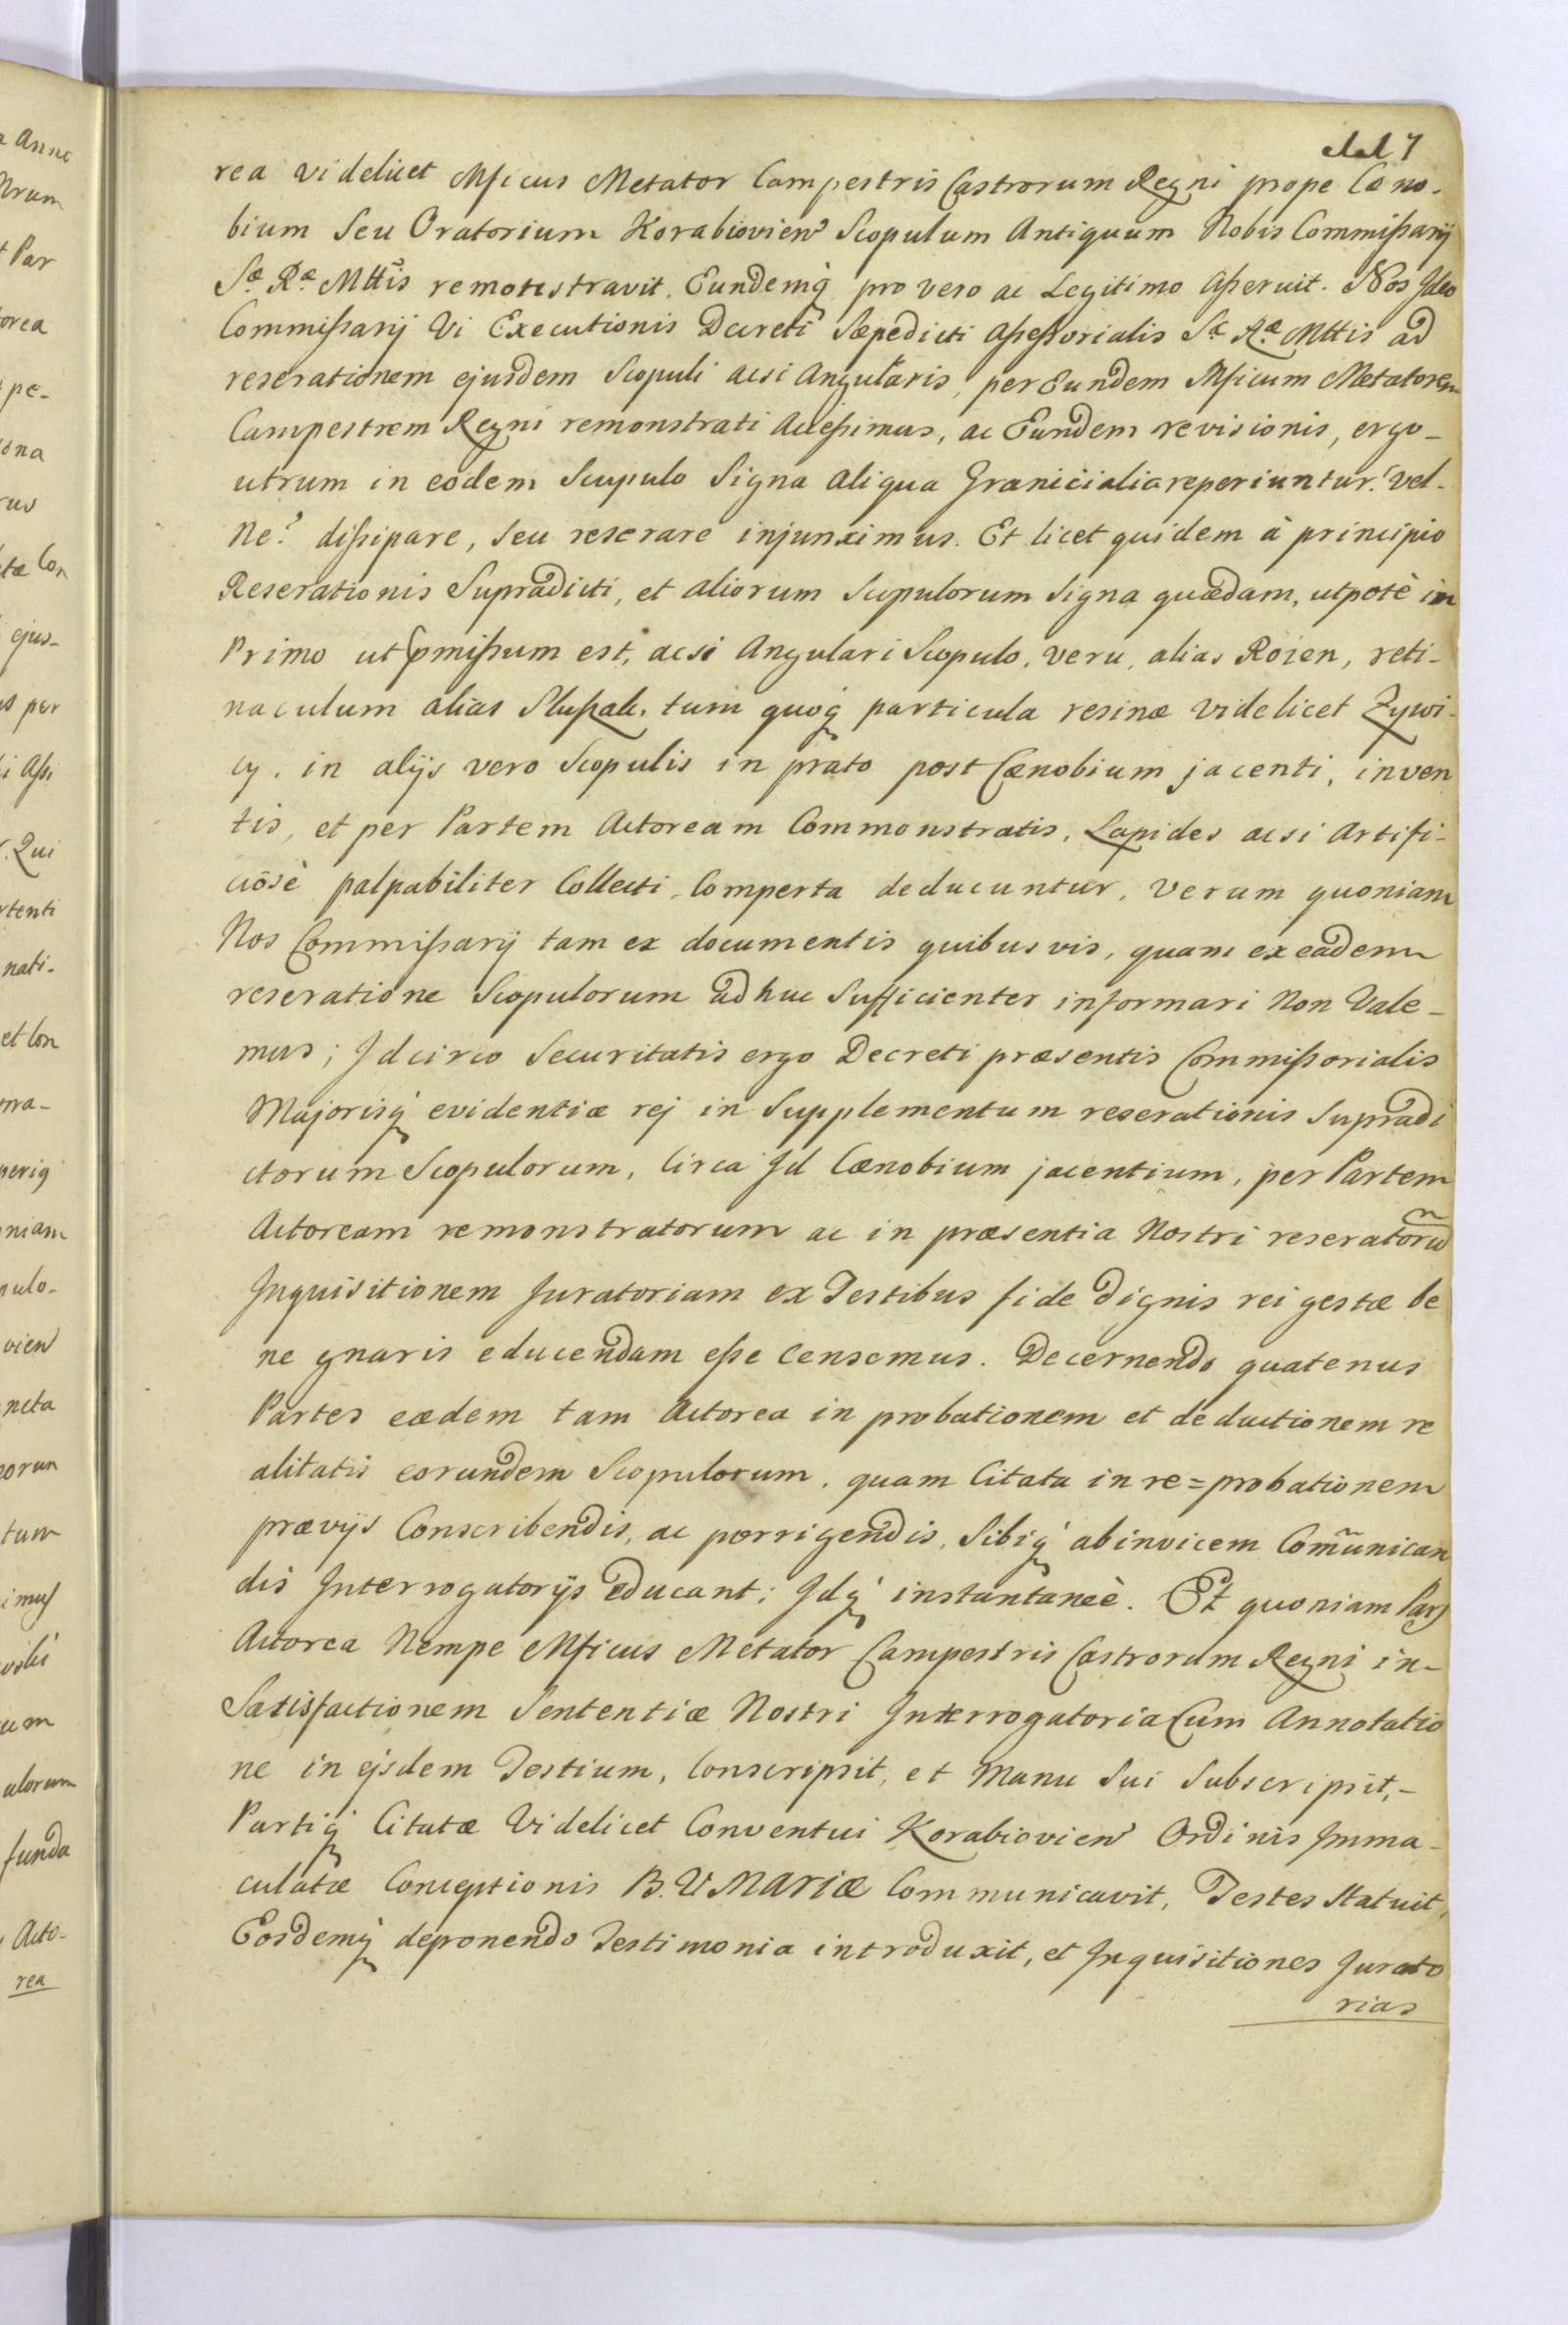 7
rea videlicet Mficus Metator Campestris Castrorum Regni prope Cæno-
bium Seu Oratorium Korabiovien Scopulum Antiquum Nobis Commißarij
Sæ Ræ Mttis remonstravit. Eundemq pro vero ac Legitimo Aßeruit. Nos Ideo
Commißarij Vi Executionis Decreti Sæpedicti Aßeßorialis Sæ Ræ Mttis ad
reserationem ejusdem Scopuli acsi Angularis, per Eundem Mficum Metatorem
Campestrem Regni remonstrati Acceßimus, ac Eundem revisionis, ergo-
utrum in eodem Scopulo Signa aliqua Granicialia reperiuntur? vel-
ne? dißipare, seu reserare injunximus. Et licet quidem à principio
Reserationis Supradicti, et aliorum Scopulorum Signa quædam, utpotè in
Primo ut pmißum est, acsi Angulari Scopulo, veru, alias Rozen, reti-
naculum alias tum quoq particula resinæ videlicet Zywi-
cy. in alijs vero Scopulis in prato post Cænobium jacenti, inven
tis, et per Partem Actoream Commonstratis, Lapides acsi Artifi-
ciosè palpabiliter Collecti, Comperta deducuntur, verum quoniam
Nos Commißarij tam ex documentis quibusvis, quam ex eadem
reseratione Scopulorum adhuc Sufficienter informari Non Vale-
mus; Idcirco Securitatis ergo Decreti præsentis Commißorialis
Majorisq evidentiæ rej in Supplementum reserationis Supradi
ctorum Scopulorum, Circa Id Cænobium jacentium, per Partem
Actoream remonstratorum ac in præsentia Nostri reseratorũ
Inquisitionem Juratoriam ex Testibus fide dignis rei gestæ be
ne gnaris educendam eße Censemus. Decernendo quatenus
Partes eædem tam Actorea in probationem et deductionem re
alitatis eorundem Scopulorum, quam Citata in re=probationem
prævijs Conscribendis, ac porrigendis, Sibiq abinvicem Com̃unican
dis Interrogatorijs educant; Idq instantaneè. Et quoniam Pars
Actorea Nempe Mficus Metator Campestris Castrorum Regni in-
Satisfactionem Sententiæ Nostri Interrogatoria Cum Annotatio
ne in ejsdem Testium, Conscripsit, et Manu Sui Subscripsit,-
Partiq Citatæ Videlicet Conventui Korabiovien Ordinis Imma-
culatæ Conceptionis B. V. MARIÆ Communicavit, Testes Statuit,
Eosdemq deponendo Testimonia introduxit, et Inquisitiones Jurato
rias